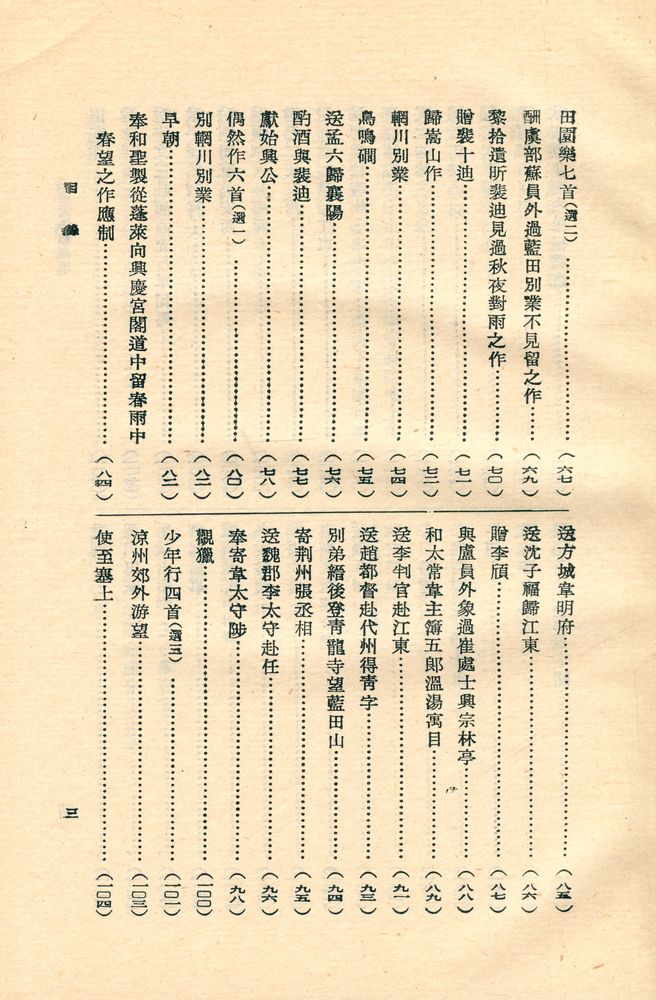 田園樂七首(選二)……(六七)
酬虞部蘇員外過藍田別業不見留之作……(六九)
黎拾遺昕裴迪見過秋夜對雨之作……(七〇)
贈裴十迪……(七一)
歸嵩山作……(七二)
輞川別業……(七四)
鳥鳴磵……(七五)
送孟六歸襄陽……(七六)
酌酒與裴迪……(七七)
獻始興公……(七八)
偶然作六首(選一)……(八〇)
別輞川別業……(八二)
早朝……(八二)
奉和聖製從蓬萊向興慶宮閣道中留春雨中
春望之作應制……(八四)
送方城韋明府……(八五)
送沈子福歸江東……(八六)
贈李頎……(八七)
與盧員外象過崔處士興宗林亭……(八八)
和太常韋主簿五郎溫湯寓目……(八九)
送李判官赴江東……(九一)
送趙都督赴代州得青字……(九三)
別弟縉後登青龍寺望藍田山……(九四)
寄荆州張丞相……(九五)
送魏郡李太守赴任……(九六)
奉寄韋太守陟……(九八)
觀獵……(一〇〇)
少年行四首(選三)……(一〇一)
涼州郊外游望……(一〇三)
使至塞上……(一〇四)
目錄
三